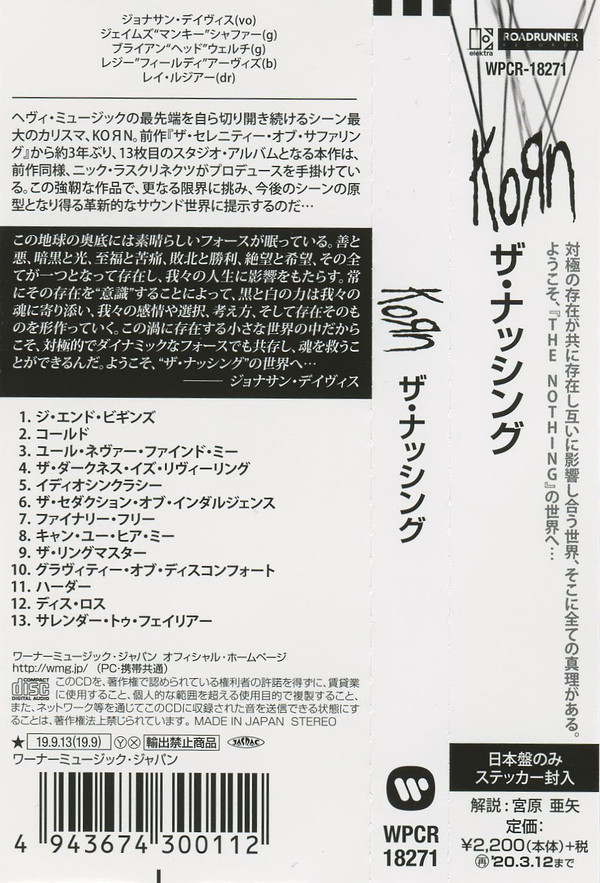 ジョナサン・デイヴィス(vo)
ジェイムズ“マンキー”シャファー(g)
ブライアン“ヘッド”ウェルチ(g)
レジー“フィールディ”アーヴィズ(b)
レイ・ルジアー(dr)
ヘヴィ・ミュージックの最先端を自ら切り開き続けるシーン最
大のカリスマ、KOЯN。前作『ザ・セレニティー・オブ・サファリン
グ』から約3年ぶり、13枚目のスタジオ・アルバムとなる本作は、
前作同様、ニック・ラスクリネクツがプロデュースを手掛けてい
る。この強靭な作品で、更なる限界に挑み、今後のシーンの原
型となり得る革新的なサウンド世界に提示するのだ…
この地球の奥底には素晴らしいフォースが眠っている。善と
悪、暗黒と光、至福と苦痛、敗北と勝利、絶望と希望、その全
てが一つとなって存在し、我々の人生に影響をもたらす。常
にその存在を“意識”することによって、黒と白の力は我々の
魂に寄り添い、我々の感情や選択、考え方、そして存在そのも
のを形作っていく。この渦に存在する小さな世界の中だから
こそ、対極的でダイナミックなフォースでも共存し、魂を救うこ
とができるんだ。ようこそ、“ザ・ナッシング”の世界へ…
―― ジョナサン・デイヴィス
1. ジ・エンド・ビギンズ
2. コールド
3. ユール・ネヴァー・ファインド・ミー
4. ザ・ダークネス・イズ・リヴィーリング
5. イディオシンクラシー
6. ザ・セダクション・オブ・インダルジェンス
7. ファイナリー・フリー
8. キャン・ユー・ヒア・ミー
9. ザ・リングマスター
10. グラヴィティー・オブ・ディスコンフォート
11. ハーダー
12. ディス・ロス
13. サレンダー・トゥ・フェイリアー
ワーナーミュージック・ジャパン オフィシャル・ホームページ
http://wmg.jp/ (PC・携帯共通)
COMPACT disc DIGITAL AUDIO
このCDを、著作権で認められている権利者の許諾を得ずに、賃貸業
に使用すること、個人的な範囲を超える使用目的で複製すること、
また、ネットワーク等を通じてこのCDに収録された音を送信できる状態にす
ることは、著作権法上禁じられています。 MADE IN JAPAN STEREO
★ 19.9.13(19.9) Ⓨ Ⓧ 輸出禁止商品 JASRAC
ワーナーミュージック・ジャパン
4 943674 300112
KoЯn
ザ・ナッシング
WPCR
18271
elektra
ROADRUNNER
RECORDS
WPCR-18271
KoЯn
ザ・ナッシング
対極の存在が共に存在し互いに影響し合う世界、そこに全ての真理がある。
ようこそ、『THE NOTHING』の世界へ…
日本盤のみ
ステッカー封入
解説：宮原 亜矢
定価：
¥2,200(本体)+税
再'20.3.12まで